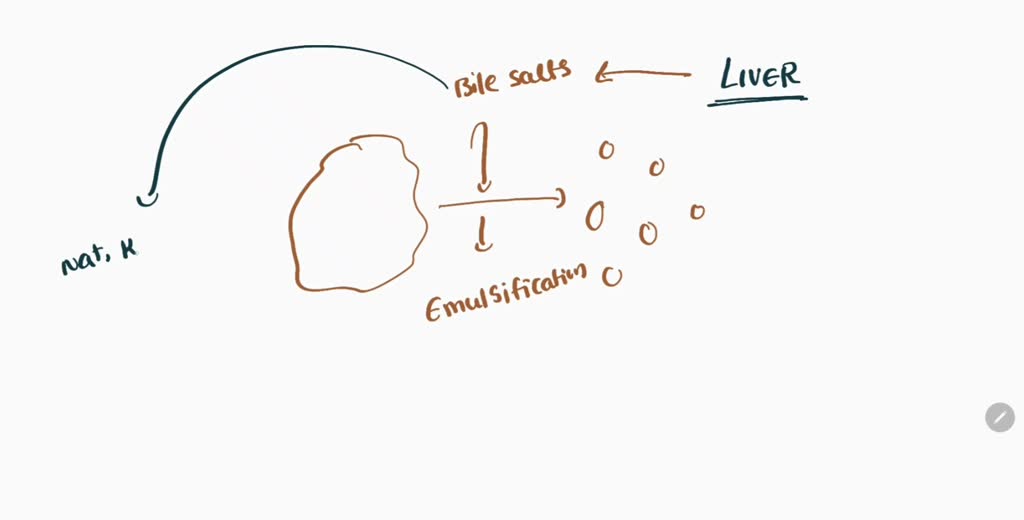 Bile salts
LIVER
Nat, K
Emulsification